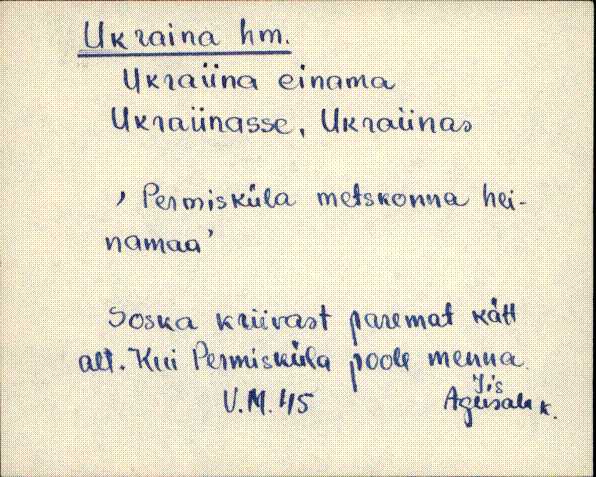 Ukraina hm.
Ukraüna einama
Ukraünasse, Ukraünas
, Permisküla metskonna hei-
namaa'
Soska kriivast paremat kätt
alt. Kui Permisküla poole menna.
V.M. 45
Jis
Agusalu k.